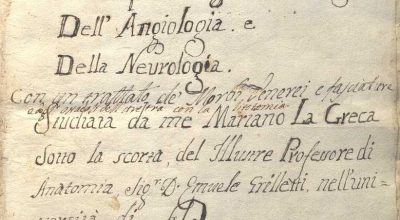 Dell' Angiologia. e
Della Neurologia.
Con un trattato de' Morbi Venerei e fasciature
con la
Studiata da me Mariano La Greca
Sotto la scorta del Illustre Professore di
Anatomia Sigr. D. Emuele Grilletti, nell'uni=
versità di